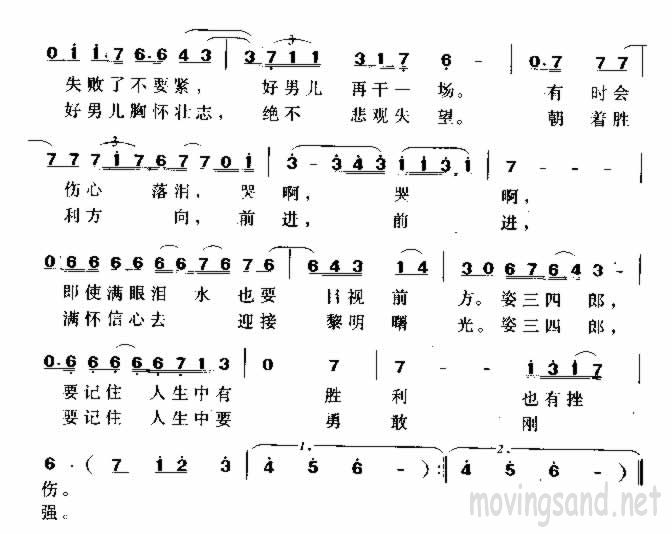 0 i i· 7 6· 6 4 3 | 3 7 1 1 3 1 7 6 - | 0· 7 7 7
失败了不要紧， 好男儿 再干一场。 有时会
好男儿胸怀壮志， 绝不 悲观失望。 朝着胜
7 7 7 i 7 6 7 7 0 i | 3 - 3 4 3 i i 3· i | 7 - - -
伤心 落泪， 哭啊， 哭 啊，
利方 向， 前进， 前 进，
0 6 6 6 6 6 6 7 6 7 6 | 6 4 3 1 4 | 3 0 6 7 6 4 3 -
即使满眼泪 水 也要 目视前 方。 姿三四郎，
满怀信心去 迎接 黎明曙 光。 姿三四郎，
0· 6 6 6 6 6 7 1 3 | 0 7 7 - - i 3 i 7
要记住 人生中有 胜 利 也有挫
要记住 人生中要 勇 敢 刚
6 · ( 7 i 2 3 | 1. 4 5 6 - ) :| 2. 4 5 6 - ) ‖
伤。
强。
movingsand.net